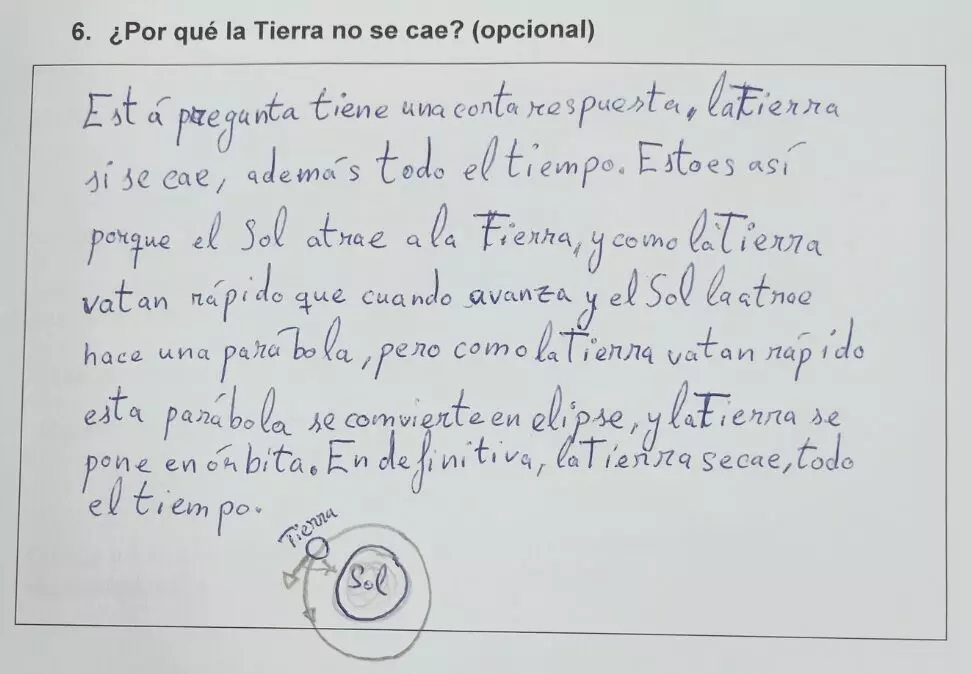 6. ¿Por qué la Tierra no se cae? (opcional)
Está pregunta tiene una conta respuesta, la Tierra
si se cae, además todo el tiempo. Esto es así
porque el Sol atrae a la Tierra, y como la Tierra
va tan rápido que cuando avanza y el Sol la atrae
hace una parábola, pero como la Tierra va tan rápido
esta parábola se comvierte en elipse, y la Tierra se
pone en órbita. En definitiva, la Tierra se cae, todo
el tiempo.
Tierra
Sol